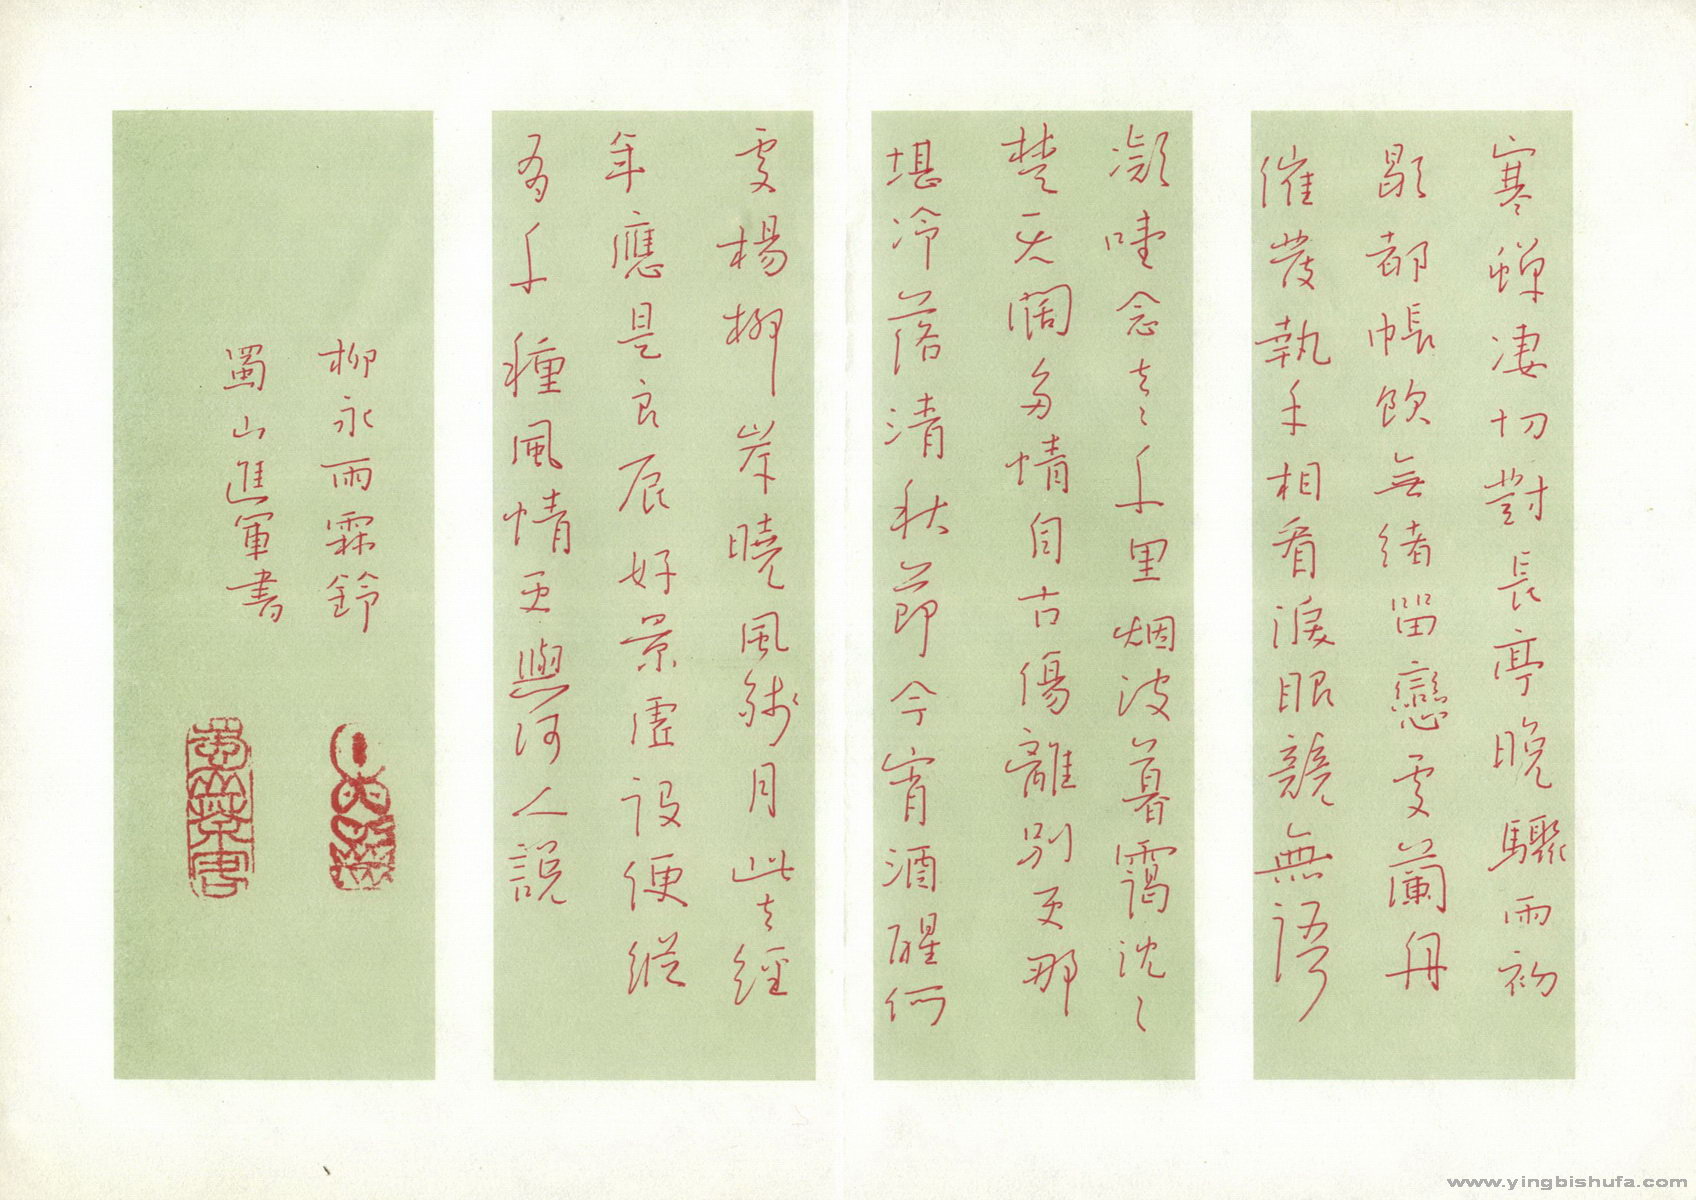 寒蟬凄切對長亭晚驟雨初
歇都帳飲無緒留戀處蘭舟
催發執手相看淚眼競無語
凝噎念去〻千里烟波暮靄沈〻
楚天闊多情自古傷離別更那
堪冷落清秋節今宵酒醒何
處楊柳岸曉風殘月此去經
年應是良辰好景虛設便縱
有千種風情更與何人說
柳永雨霖鈴
蜀山進軍書
www.yingbishufa.com